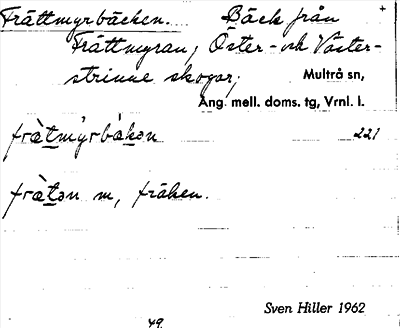 Frättmyrbäcken. Bäck från +
Frättmyran, Öster- och Väster-
strinne skogar, Multrå sn,
Ång. mell. doms. tg, Vrnl. l.
frä̀tmýrbä̀kən 221
frä̀tən m, fräken.
Sven Hiller 1962
49.